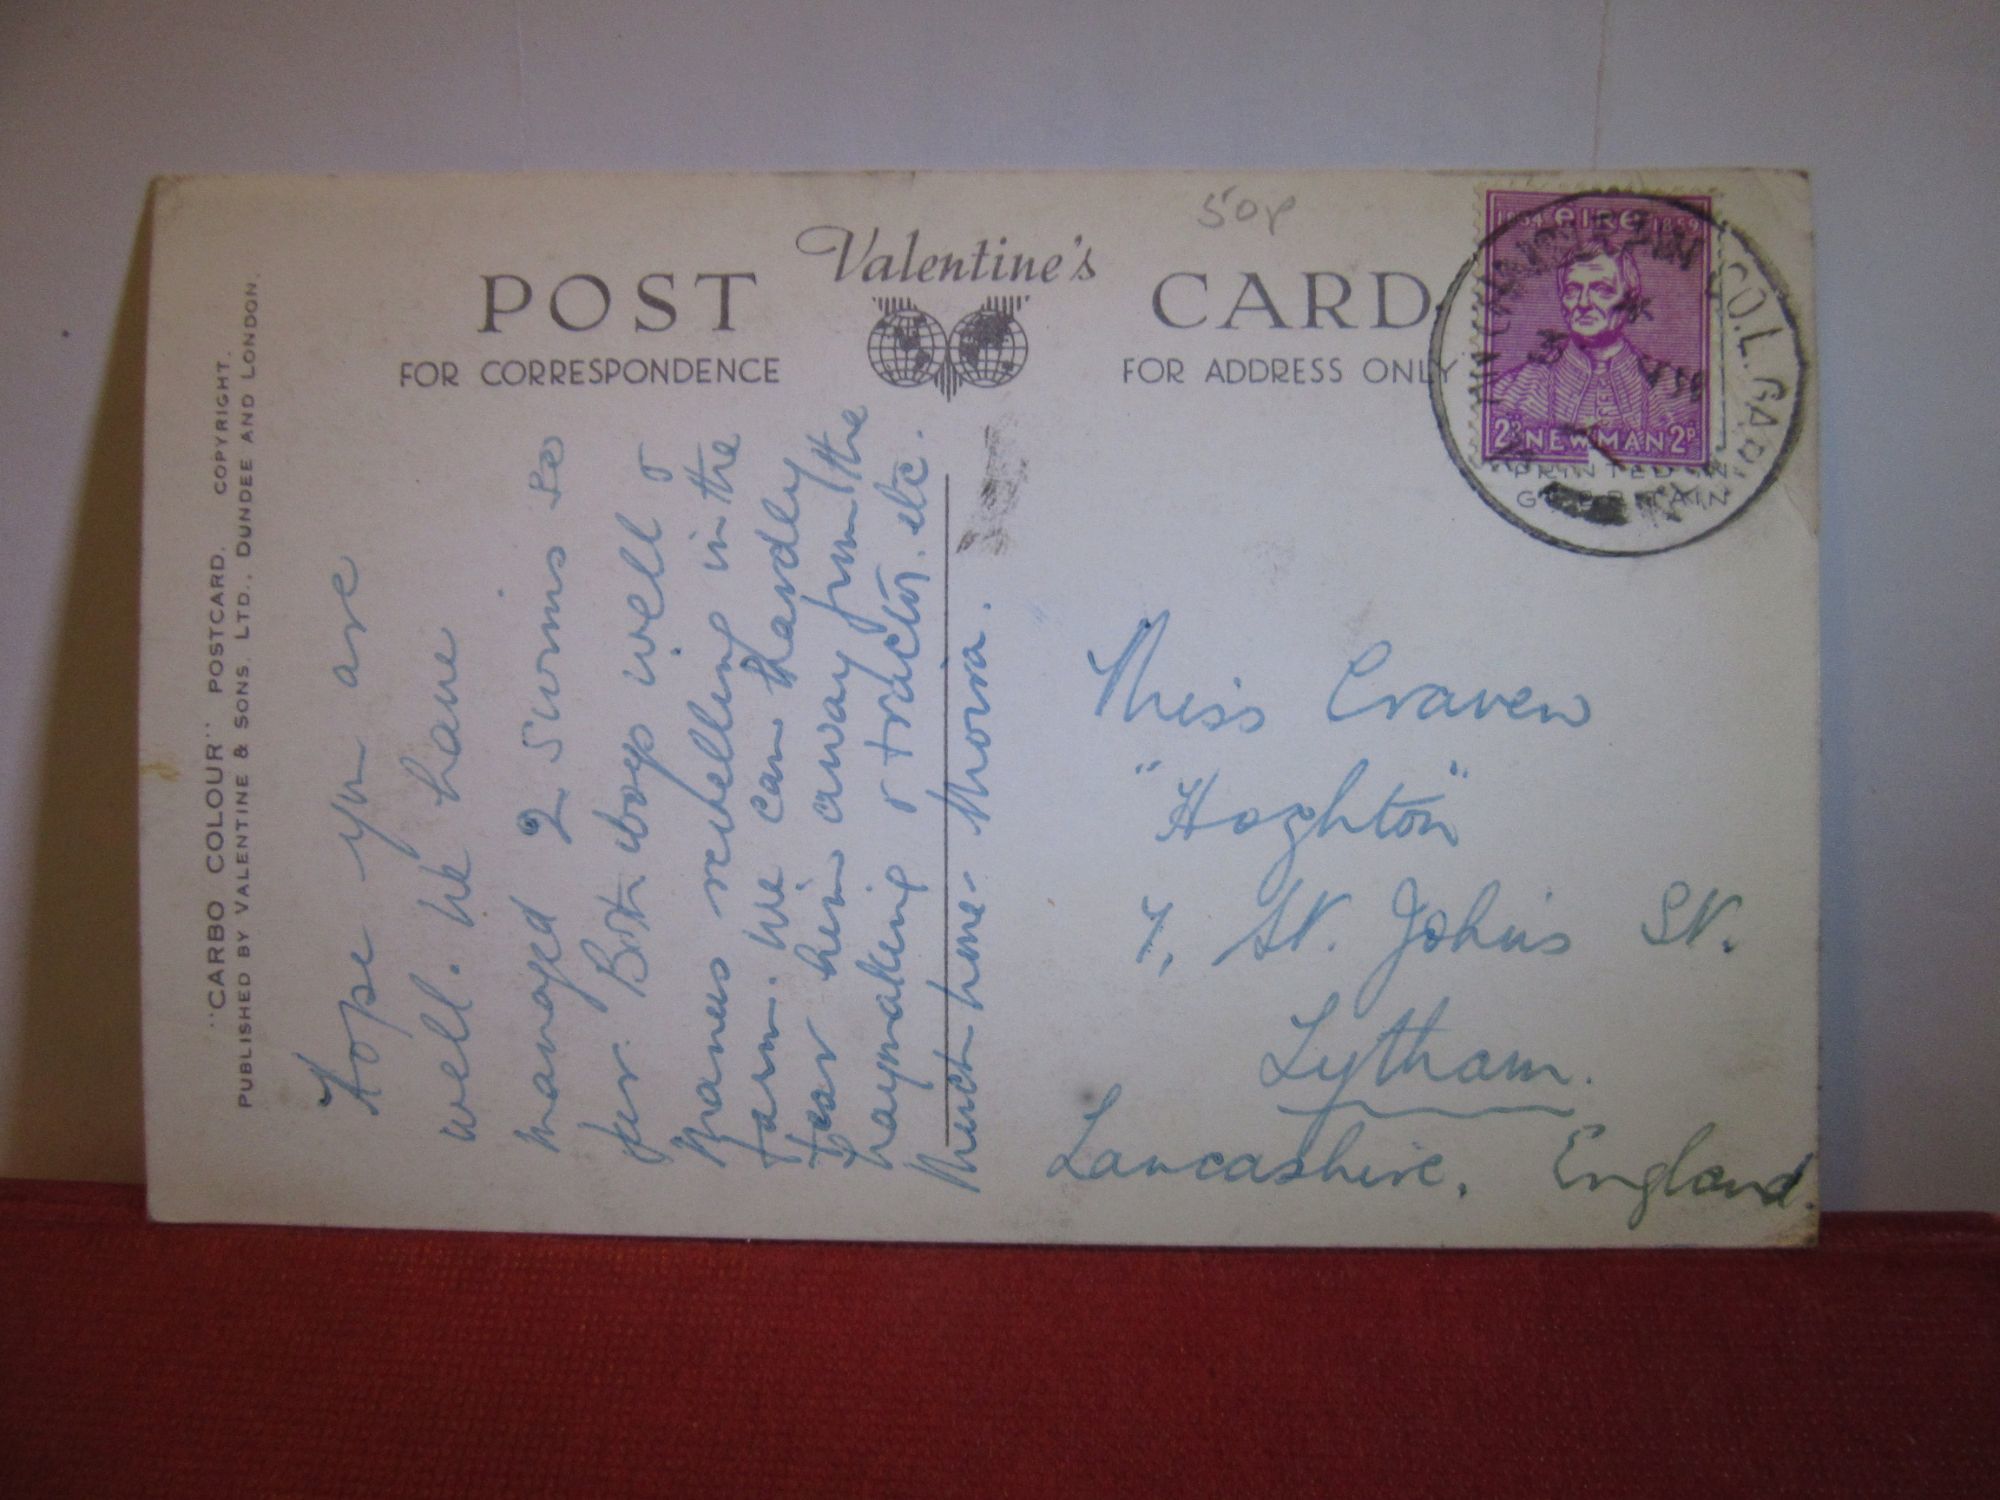 "CARBO COLOUR" POSTCARD. COPYRIGHT.
PUBLISHED BY VALENTINE & SONS, LTD., DUNDEE AND LONDON.
POST Valentine's CARD
FOR CORRESPONDENCE
FOR ADDRESS ONLY
50p
Hope you are
well. We have
managed 2 swims so
far. Both boys well &
Manus revelling in the
farm. We can hardly
tear him away from the
haymaking & tractor. etc.
Much love - Moira.
1854 EIRE 1954
2P NEWMAN 2P
CO. L. GAR
PRINTED IN
GT. BRITAIN
Miss Craven
"Hoghton"
7, St. John's St.
Lytham.
Lancashire. England.